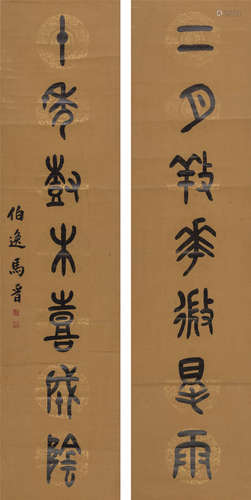 二月華微是雨
十年樹木喜成陰
伯逸馬晉